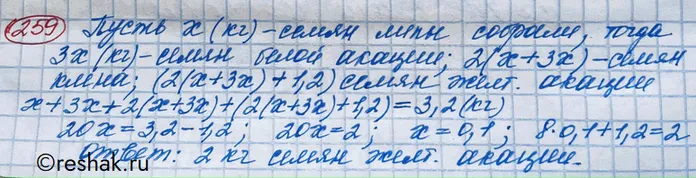 259 Пусть х (кг) - семян липы собрали, тогда
3х (кг) - семян белой акации; 2(х+3х) - семян
клёна; (2(х+3х)+1,2) семян желт. акации
х+3х+2(х+3х)+(2(х+3х)+1,2)=3,2(кг)
20х=3,2-1,2; 20х=2; х=0,1; 8·0,1+1,2=2
Ответ: 2 кг семян желт. акации.
©reshak.ru